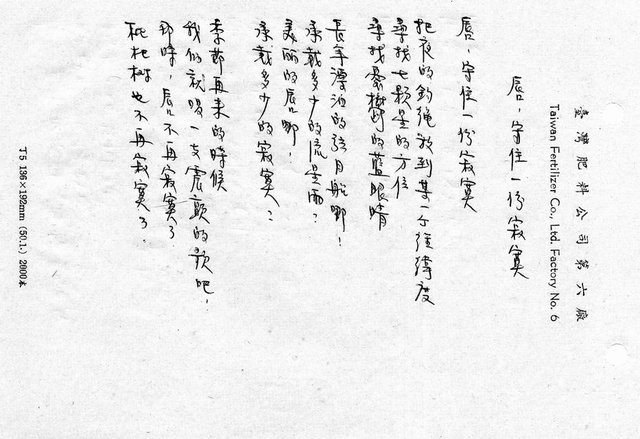 臺灣肥料公司第六廠
Taiwan Fertilizer Co., Ltd. Factory No. 6
唇，守住一份寂寞
唇，守住一份寂寞
把夜的釣繩放到某个經緯度
尋找七顆星的方位
尋找憂鬱的藍眼睛
長年漂泊的弦月船啊！
承載多少的流星雨？
美丽的唇啊！
承載多少的寂寞？
季節再来的時候
我们就唱一支震顫的歌吧，
那時，唇不再寂寞了
枇杷树也不再寂寞了。
T5 136×192mm (50.1.) 2800本